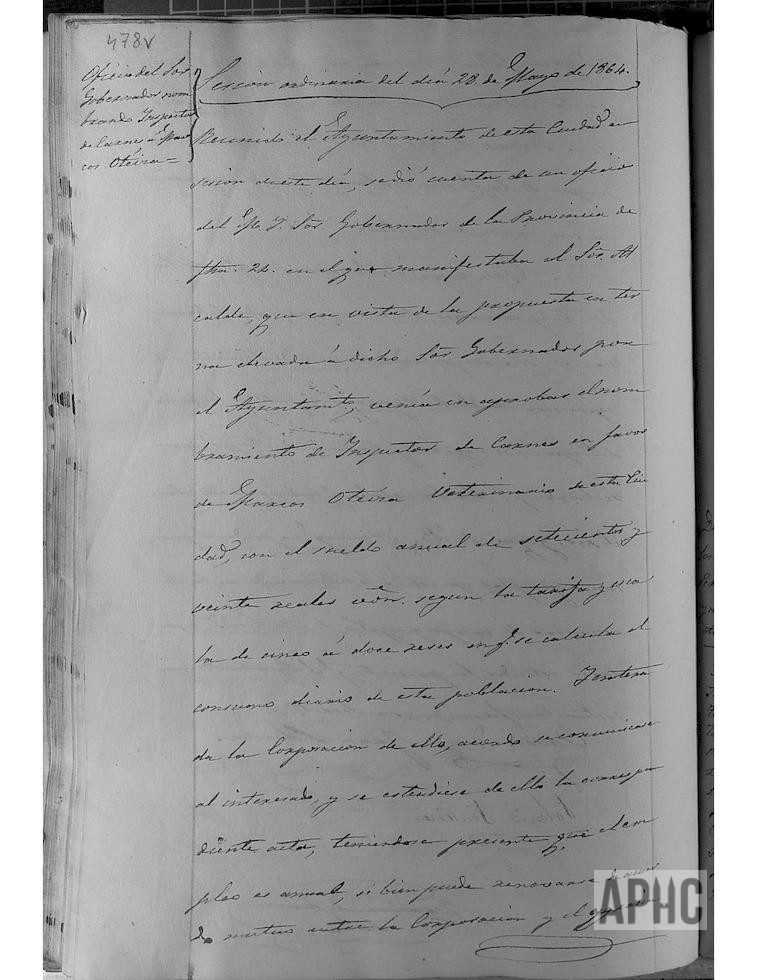 478v
Oficio del Sor
Gobernador nom
brando Inspector
de Carnes á Mar
cos Otéira=
Sesion ordinaria del dia 28 de Mayo de 1864.
Reunido el Ayuntamiento de esta Ciudad en
sesion de este dia, se dió cuenta de un oficio
del M. I. Sor. Gobernador de la Provincia de
fha. 24. en el que manifestaba al Sor. Al
calde, que en vista de la propuesta en ter
na elevada á dicho Sor Gobernador por
el Ayuntamto, venía en aprobar el nom
bramiento de Inspector de Carnes en favor
de Marcos Otéira Veterinario de esta Ciu
dad, con el sueldo anual de setecientos y
veinte reales von. segun la tarifa y esca
la de cinco á doce reses en q. se calcula el
consumo diario de esta poblacion. Y entera
da la Corporacion de ello, acordó se comunicase
al interesado, y se estendiese de ello la correspon
diente acta, teniendose presente que el em
pleo es anual, si bien puede renovarse de acuer
do mutuo entre la Corporacion y el
APHC